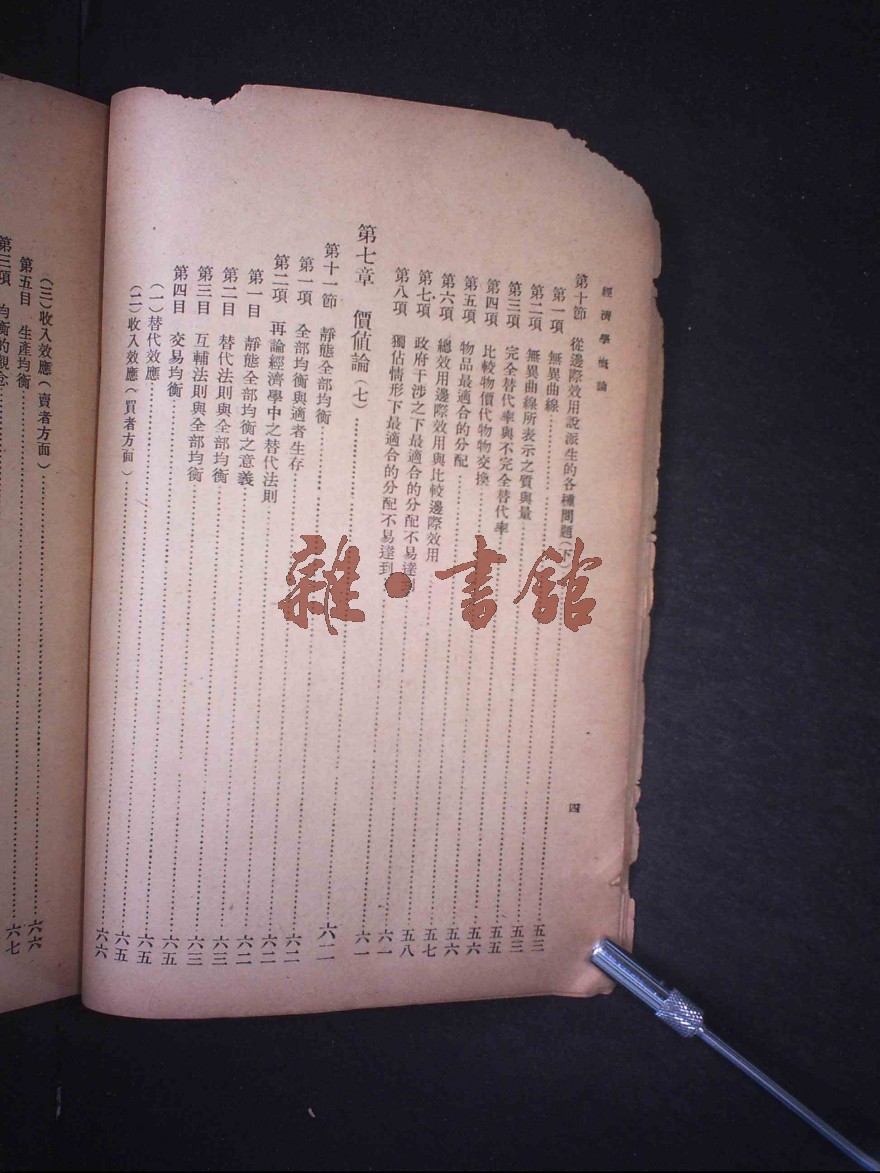 經濟學概論
四
第十節 從邊際效用說派生的各種問題(下)……五三
第一項 無異曲線……五三
第二項 無異曲線所表示之質與量……五五
第三項 完全替代率與不完全替代率……五六
第四項 比較物價代物物交換……五六
第五項 物品最適合的分配……五七
第六項 總效用邊際效用與比較邊際效用……五八
第七項 政府干涉之下最適合的分配不易達到……六一
第八項 獨佔情形下最適合的分配不易達到……六一
第七章 價值論(七)……六一
第十一節 靜態全部均衡……六二
第一項 全部均衡與適者生存……六二
第二項 再論經濟學中之替代法則……六二
第一目 靜態全部均衡之意義……六三
第二目 替代法則與全部均衡……六三
第三目 互輔法則與全部均衡……六五
第四目 交易均衡……六五
(一)替代效應……六五
(二)收入效應(買者方面)……六六
(三)收入效應(賣者方面)……六六
第五目 生產均衡……六七
第三項 均衡的觀念……
雜·書館